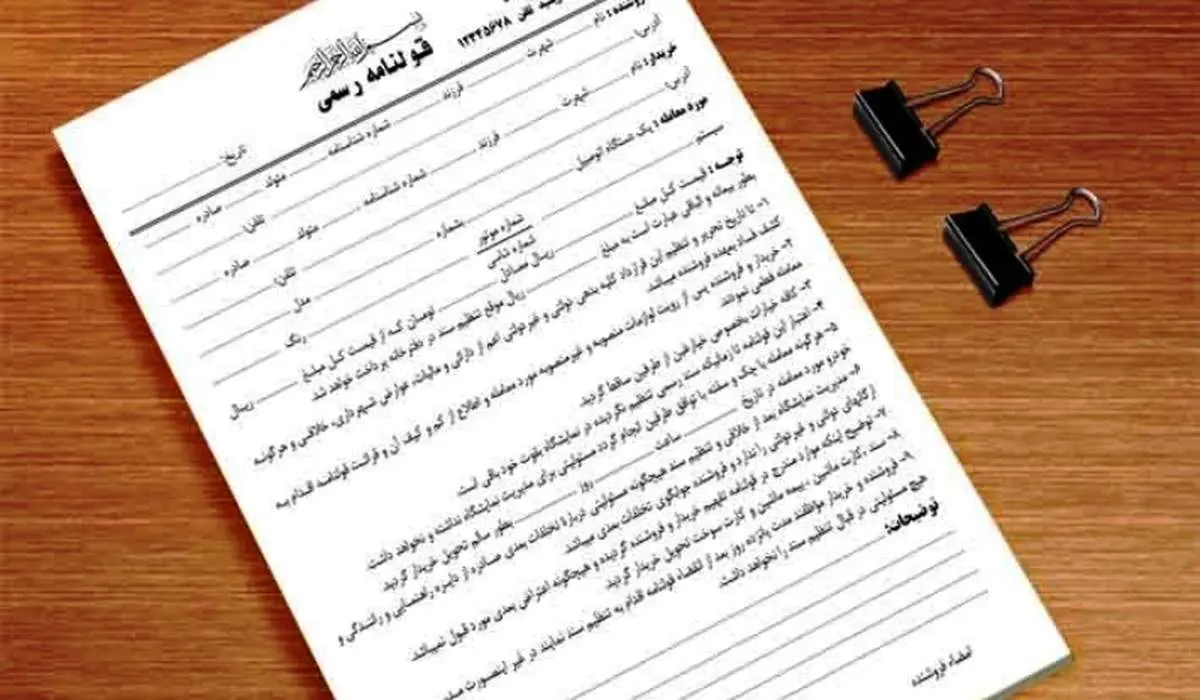 تلفن ۱۲۳۴۵۶۷۸
قولنامه رسمی
تاریخ:
فروشنده: نام شهرت فرزند شماره شناسنامه متولد صادره
آدرس: تلفن:
خریدار: نام شهرت فرزند شماره شناسنامه متولد صادره
آدرس: تلفن:
مورد معامله: یک دستگاه اتومبیل بشماره مدل
سیستم شماره موتور رنگ
شماره شاسی
توجه: قیمت کل مبلغ ریال معادل تومان که از قیمت کل مبلغ ریال
بطور بیعانه و الباقی عبارت است به مبلغ ریال موقع تنظیم سند در دفترخانه پرداخت خواهد شد.
۱- تا تاریخ تحریر و تنظیم این قرارداد کلیه بدهی دولتی و غیردولتی اعم از دارائی و مالیات، عوارض شهرداری، خلافی و هرگونه
کشف فساد بعهده فروشنده میباشد.
۲- خریدار و فروشنده پس از رویت لوازمات منصوبه و غیرمنصوبه مورد معامله و اطلاع از کم و کیف آن و قرائت قولنامه اقدام به
معامله قطعی نمودند.
۳- کافه خیارات بخصوص خیارغبن از طرفین ساقط گردید.
۴- اعتبار این قولنامه تا زمانیکه سند رسمی تنظیم نگردیده در نمایشگاه بقوت خود باقی است.
۵- هرگونه معامله با چک و سفته با توافق طرفین انجام گردد مسئولیتی برای مدیریت نمایشگاه نداشته و نخواهد داشت.
خودرو مورد معامله در تاریخ ساعت روز بطور سالم تحویل خریدار گردید.
۶- مدیریت نمایشگاه بعد از خلافی و تنظیم سند هیچگونه مسئولیتی درباره تخلفات بعدی صادره از دایره راهنمایی و رانندگی و
ارگانهای دولتی و غیردولتی را ندارد و فروشنده جوابگوی تخلفات بعدی میباشد.
۷- توضیح اینکه موارد مندرج در قولنامه تفهیم خریدار و فروشنده گردیده و هیچگونه اعتراض بعدی مورد قبول نمیباشد.
۸- سند، کارت ماشین، بیمه ماشین و کارت سوخت تحویل خریدار گردید.
۹- فروشنده و خریدار موظفند مدت پانزده روز بعد از انقضاء قولنامه اقدام به تنظیم سند نمایند در غیر اینصورت
هیچ مسئولیتی در قبال تنظیم سند را نخواهد داشت.
توضیحات:
امضاء فروشنده